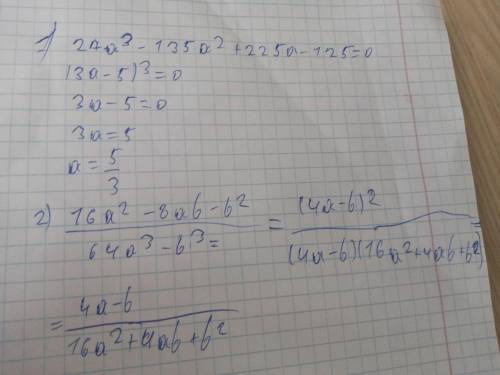 1) 27a³ - 135a² + 225a - 125 = 0
(3a - 5)³ = 0
3a - 5 = 0
3a = 5
a = 5/3
2) (16a² - 8ab - b²)/(64a³ - b³) = (4a - b)²/((4a - b)(16a² + 4ab + b²)) =
= (4a - b)/(16a² + 4ab + b²)